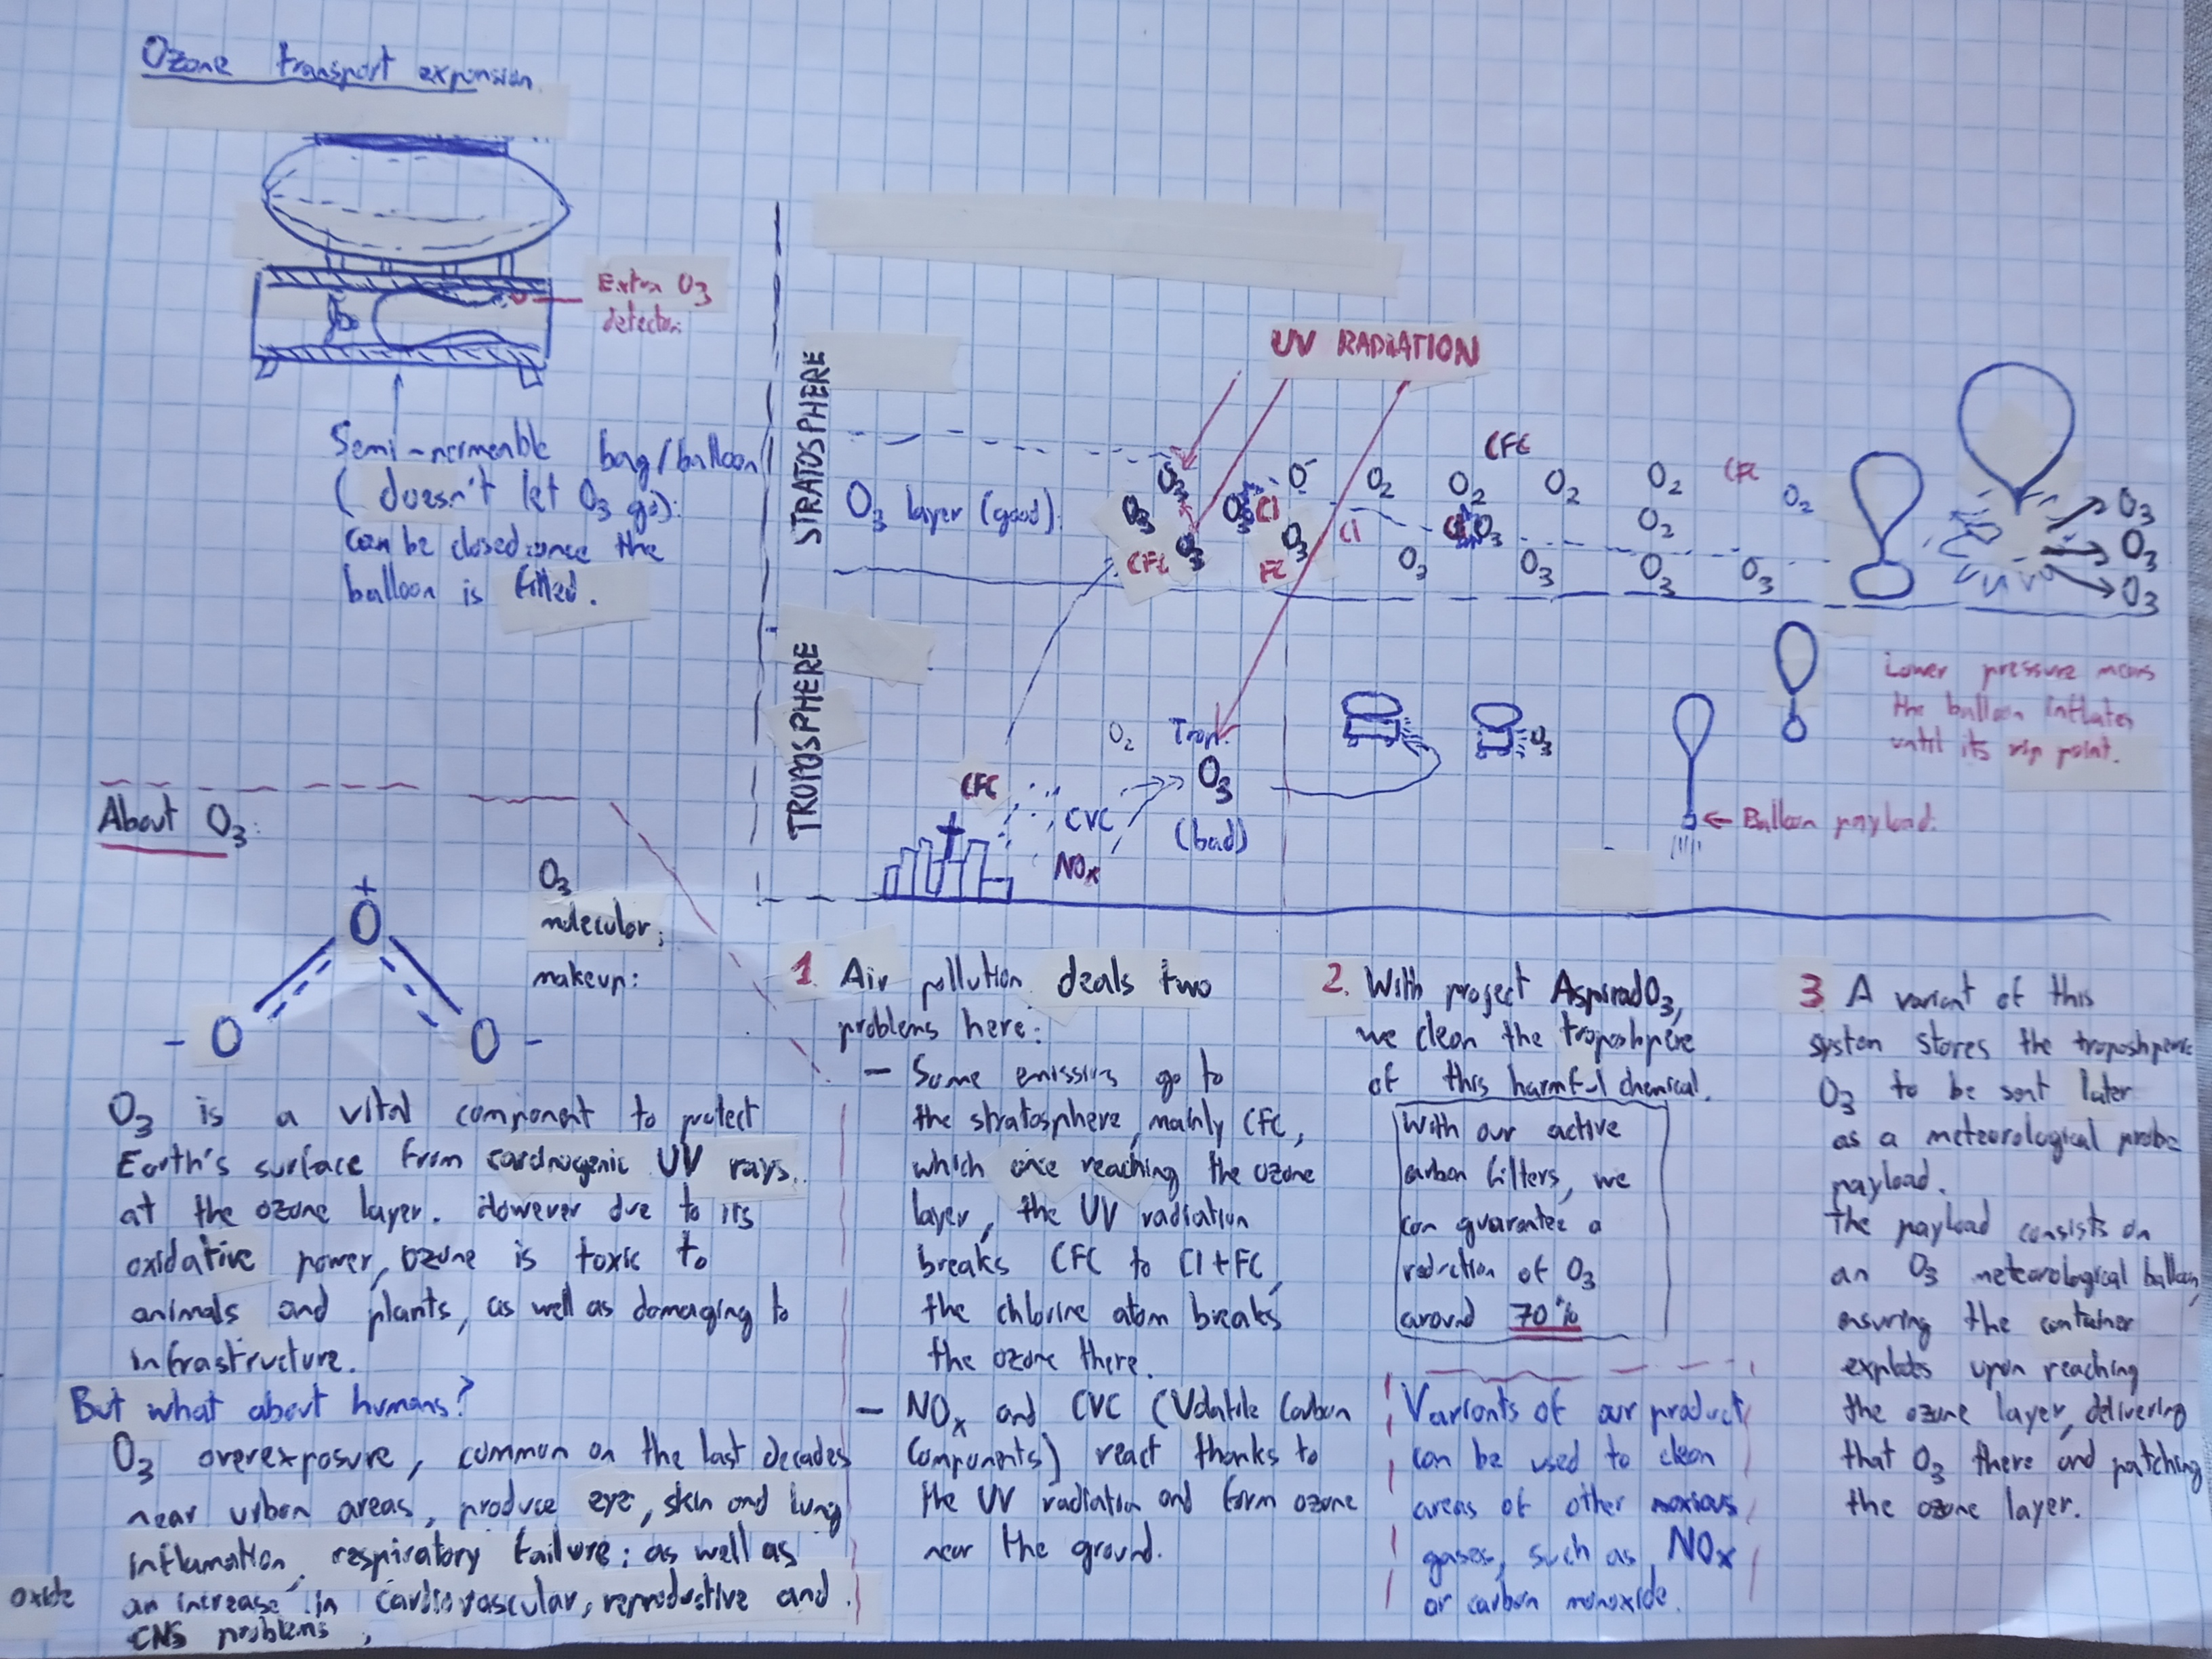 Ozone transport expansion
Extra O3
detector.
Semi-permeable bag/balloon
(doesn't let O3 go):
can be closed once the
balloon is filled.
STRATOSPHERE
UV RADIATION
O3 layer (good)
O3
O3
O3
O3
O3
CFC
Cl
FC
O-
Cl
O2
O2
CFC
O2
O2
O2
O2
O3
O3
O3
O3
O3
O3
O3
O3
TROPOSPHERE
CFC
CVC
NOx
O2
Trop.
O3
(bad)
O3
Lower pressure means
the balloon inflates
until its rip point.
← Balloon payload.
About O3:
O3
molecular
makeup:
+
O
- O
O -
O3 is a vital component to protect
Earth's surface from carcinogenic UV rays.
at the ozone layer. However due to its
oxidative power, ozone is toxic to
animals and plants, as well as damaging to
infrastructure.
But what about humans?
O3 overexposure, common on the last decades
near urban areas, produce eye, skin and lung
inflamation, respiratory failure; as well as
an increase in cardiovascular, reproductive and
CNS problems
oxide
1. Air pollution deals two
problems here:
- Some emissions go to
the stratosphere, mainly CFC,
which once reaching the ozone
layer, the UV radiation
breaks CFC to Cl+FC,
the chlorine atom breaks
the ozone there.
- NOx and CVC (Volatile Carbon
Components) react thanks to
the UV radiation and form ozone
near the ground.
2. With project AspiradO3,
we clean the troposhpere
of this harmful chemical.
With our active
carbon filters, we
can guarantee a
reduction of O3
around 70%
Variants of our product
can be used to clean
areas of other noxious
gases, such as NOx
or carbon monoxide.
3 A variant of this
system stores the troposhperic
O3 to be sent later
as a meteorological probe
payload.
The payload consists on
an O3 meteorological balloon,
ensuring the container
explodes upon reaching
the ozone layer, delivering
that O3 there and patching
the ozone layer.